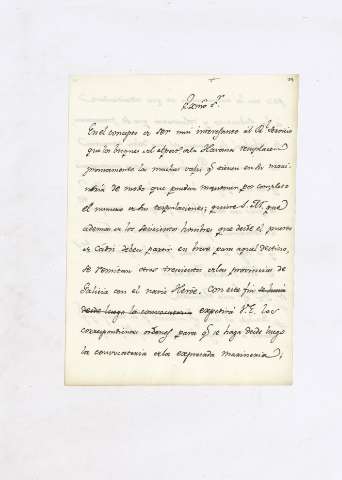 Exmo. Sr.
En el concepto de ser mui interesante al Rl. Servicio
que los buques del apostadero de la Havana remplacen
prontamente las muchas vajas qe. tienen en su mari-
nería de modo que puedan mantener por completo
el numero de sus tripulaciones; quiere S. M. que
ademas de los seiscientos hombres que desde el puerto
de Cadiz deben partir en breve para aquel destino,
se remitan otros trescientos de la provincia de
Galicia con el navio Heroe. Con este fin se hacia
desde luego la convocatoria expedirá V. E. las
correspondientes ordenes para qe. se haga desde luego
la convocatoria de la expresada marinería;